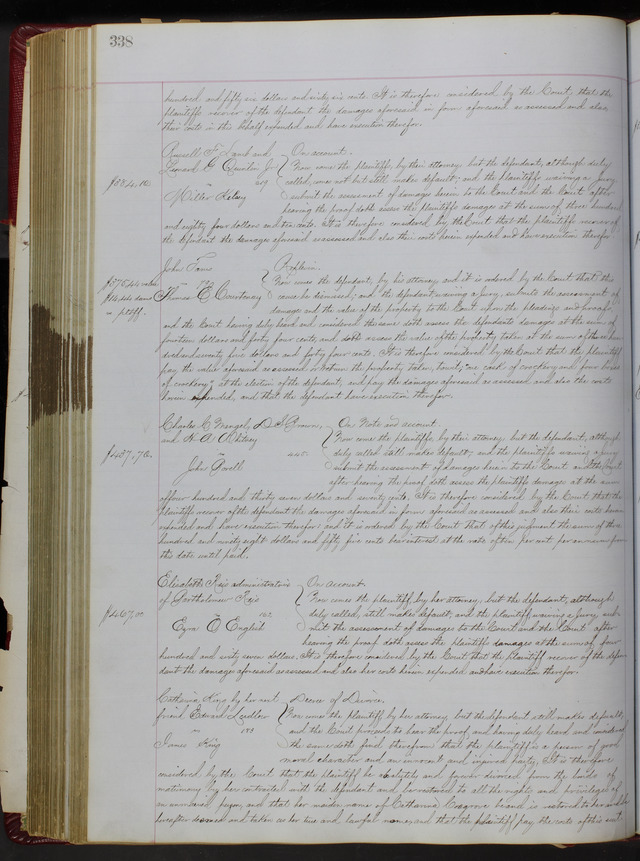 338
hundred and fifty six dollars and ninety six cents. It is therefore considered by the Court, that the
plaintiffs recover of the defendant the damages aforesaid in form aforesaid as assessed and also
their costs in this behalf expended and have execution therefor.
Russell F. Lamb and
On account.
Leonard G. Quinlin Jr
Now come the plaintiffs, by their attorney but the defendant, although duly
$384.10
called, comes not but still makes default; and the plaintiffs waiving a jury
vs
Miller Kelsey
submit the assessment of damages herein to the Court and the Court after
hearing the proof doth assess the plaintiffs damages at the sum of three hundred
and eighty four dollars and ten cents. It is therefore considered by the Court that the plaintiffs recover of
the defendant the damages aforesaid as assessed and also their costs herein expended and have execution therefor.
John
Replevin.
$375.44 value
Now come the defendant, by his attorney and it is ordered by the Court that this
$14.44 dam
Thomas E. Courtenay
cause be dismissed; and the defendant waiving a jury, submits the assessment of
vs. pltff.
damages and the value of the property to the Court upon the pleadings and proofs,
and the Court having duly heard and considered the same doth assess the defendants damages at the sum of
fourteen dollars and forty four cents, and doth assess the value of the property taken at the sum of three hun
dred and seventy five dollars and forty four cents. It is therefore considered by the Court that the plaintiff
pay the value aforesaid as assessed or return the property taken, to wit; one cask of crockery and four boxes
of crockery; at the election of the defendant, and pay the damages aforesaid as assessed and also the costs
herein expended, and that the defendant have execution therefor.
Charles C. Wrangel, D. S. Brown,
On Note and account.
and N. A. Oltsey
Now come the plaintiffs, by their attorney but the defendant, although
$437.70.
duly called, still makes default; and the plaintiffs waiving a jury
vs
John Powell
submit the assessment of damages herein to the Court and the Court
after hearing the proof doth assess the plaintiffs damages at the sum
of four hundred and thirty seven dollars and seventy cents. It is therefore considered by the Court that the
plaintiffs recover of the defendant the damages aforesaid in form aforesaid as assessed and also their costs herein
expended and have execution therefor; and it is ordered by the Court that of this judgment the sum of three
hundred and ninety eight dollars and fifty five cents bear interest at the rate of ten per cent. per annum from
this date until paid.
Elizabeth Reis administratrix
On account.
of Bartholomew Reis
Now comes the plaintiff, by her attorney, but the defendant, although
$467.00
duly called, still makes default, and the plaintiff waiving a jury sub-
vs
Ezra O. English
mits the assessment of damages to the Court and the Court after
hearing the proof doth assess the plaintiffs damages at the sum of four
hundred and sixty seven dollars. It is therefore considered by the Court that the plaintiff recover of the defen
dant the damages aforesaid as assessed and also her costs herein expended and have execution therefor.
Catharine King by her next
Decree of Divorce.
friend Edward
Now come the plaintiff by her attorney but the defendant still makes default,
and the Court proceeds to hear the proof, and having duly heard and considered
James King
the same doth find therefrom that the plaintiff is a person of good
moral character and an innocent and injured party. It is therefore
considered by the Court that the plaintiff be absolutely and forever divorced from the bonds of
matrimony by her contracted with the defendant and be restored to all the rights and privileges of
an unmarried person, and that her maiden name of Catharine Cosgrove be and is restored to her and be
hereafter deemed and taken as her true and lawful name; and that the plaintiff pay the costs of this suit.